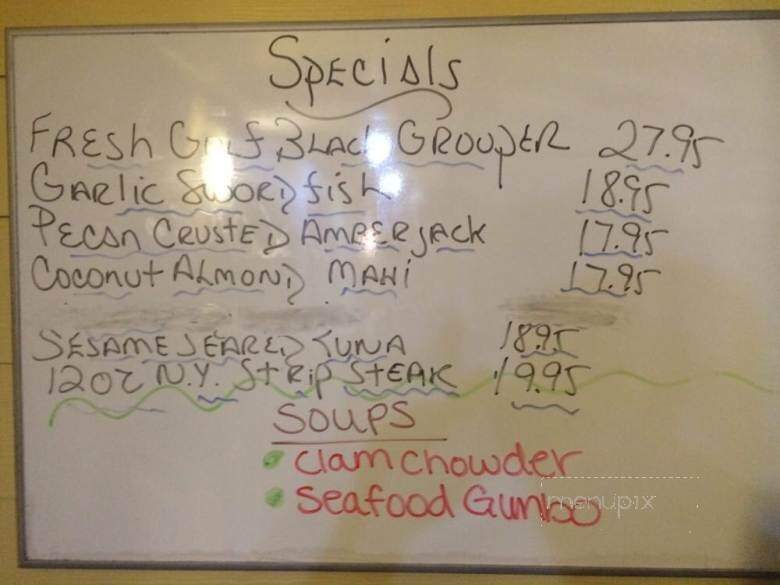 SPECIALS
FRESH GULF BLACK GROUPER 27.95
GARLIC SWORDFISH 18.95
PECAN CRUSTED AMBERJACK 17.95
COCONUT ALMOND MAHI 17.95
SESAME SEARED TUNA 18.95
12OZ N.Y. STRIP STEAK 19.95
SOUPS
• Clam Chowder
• Seafood Gumbo
menupix